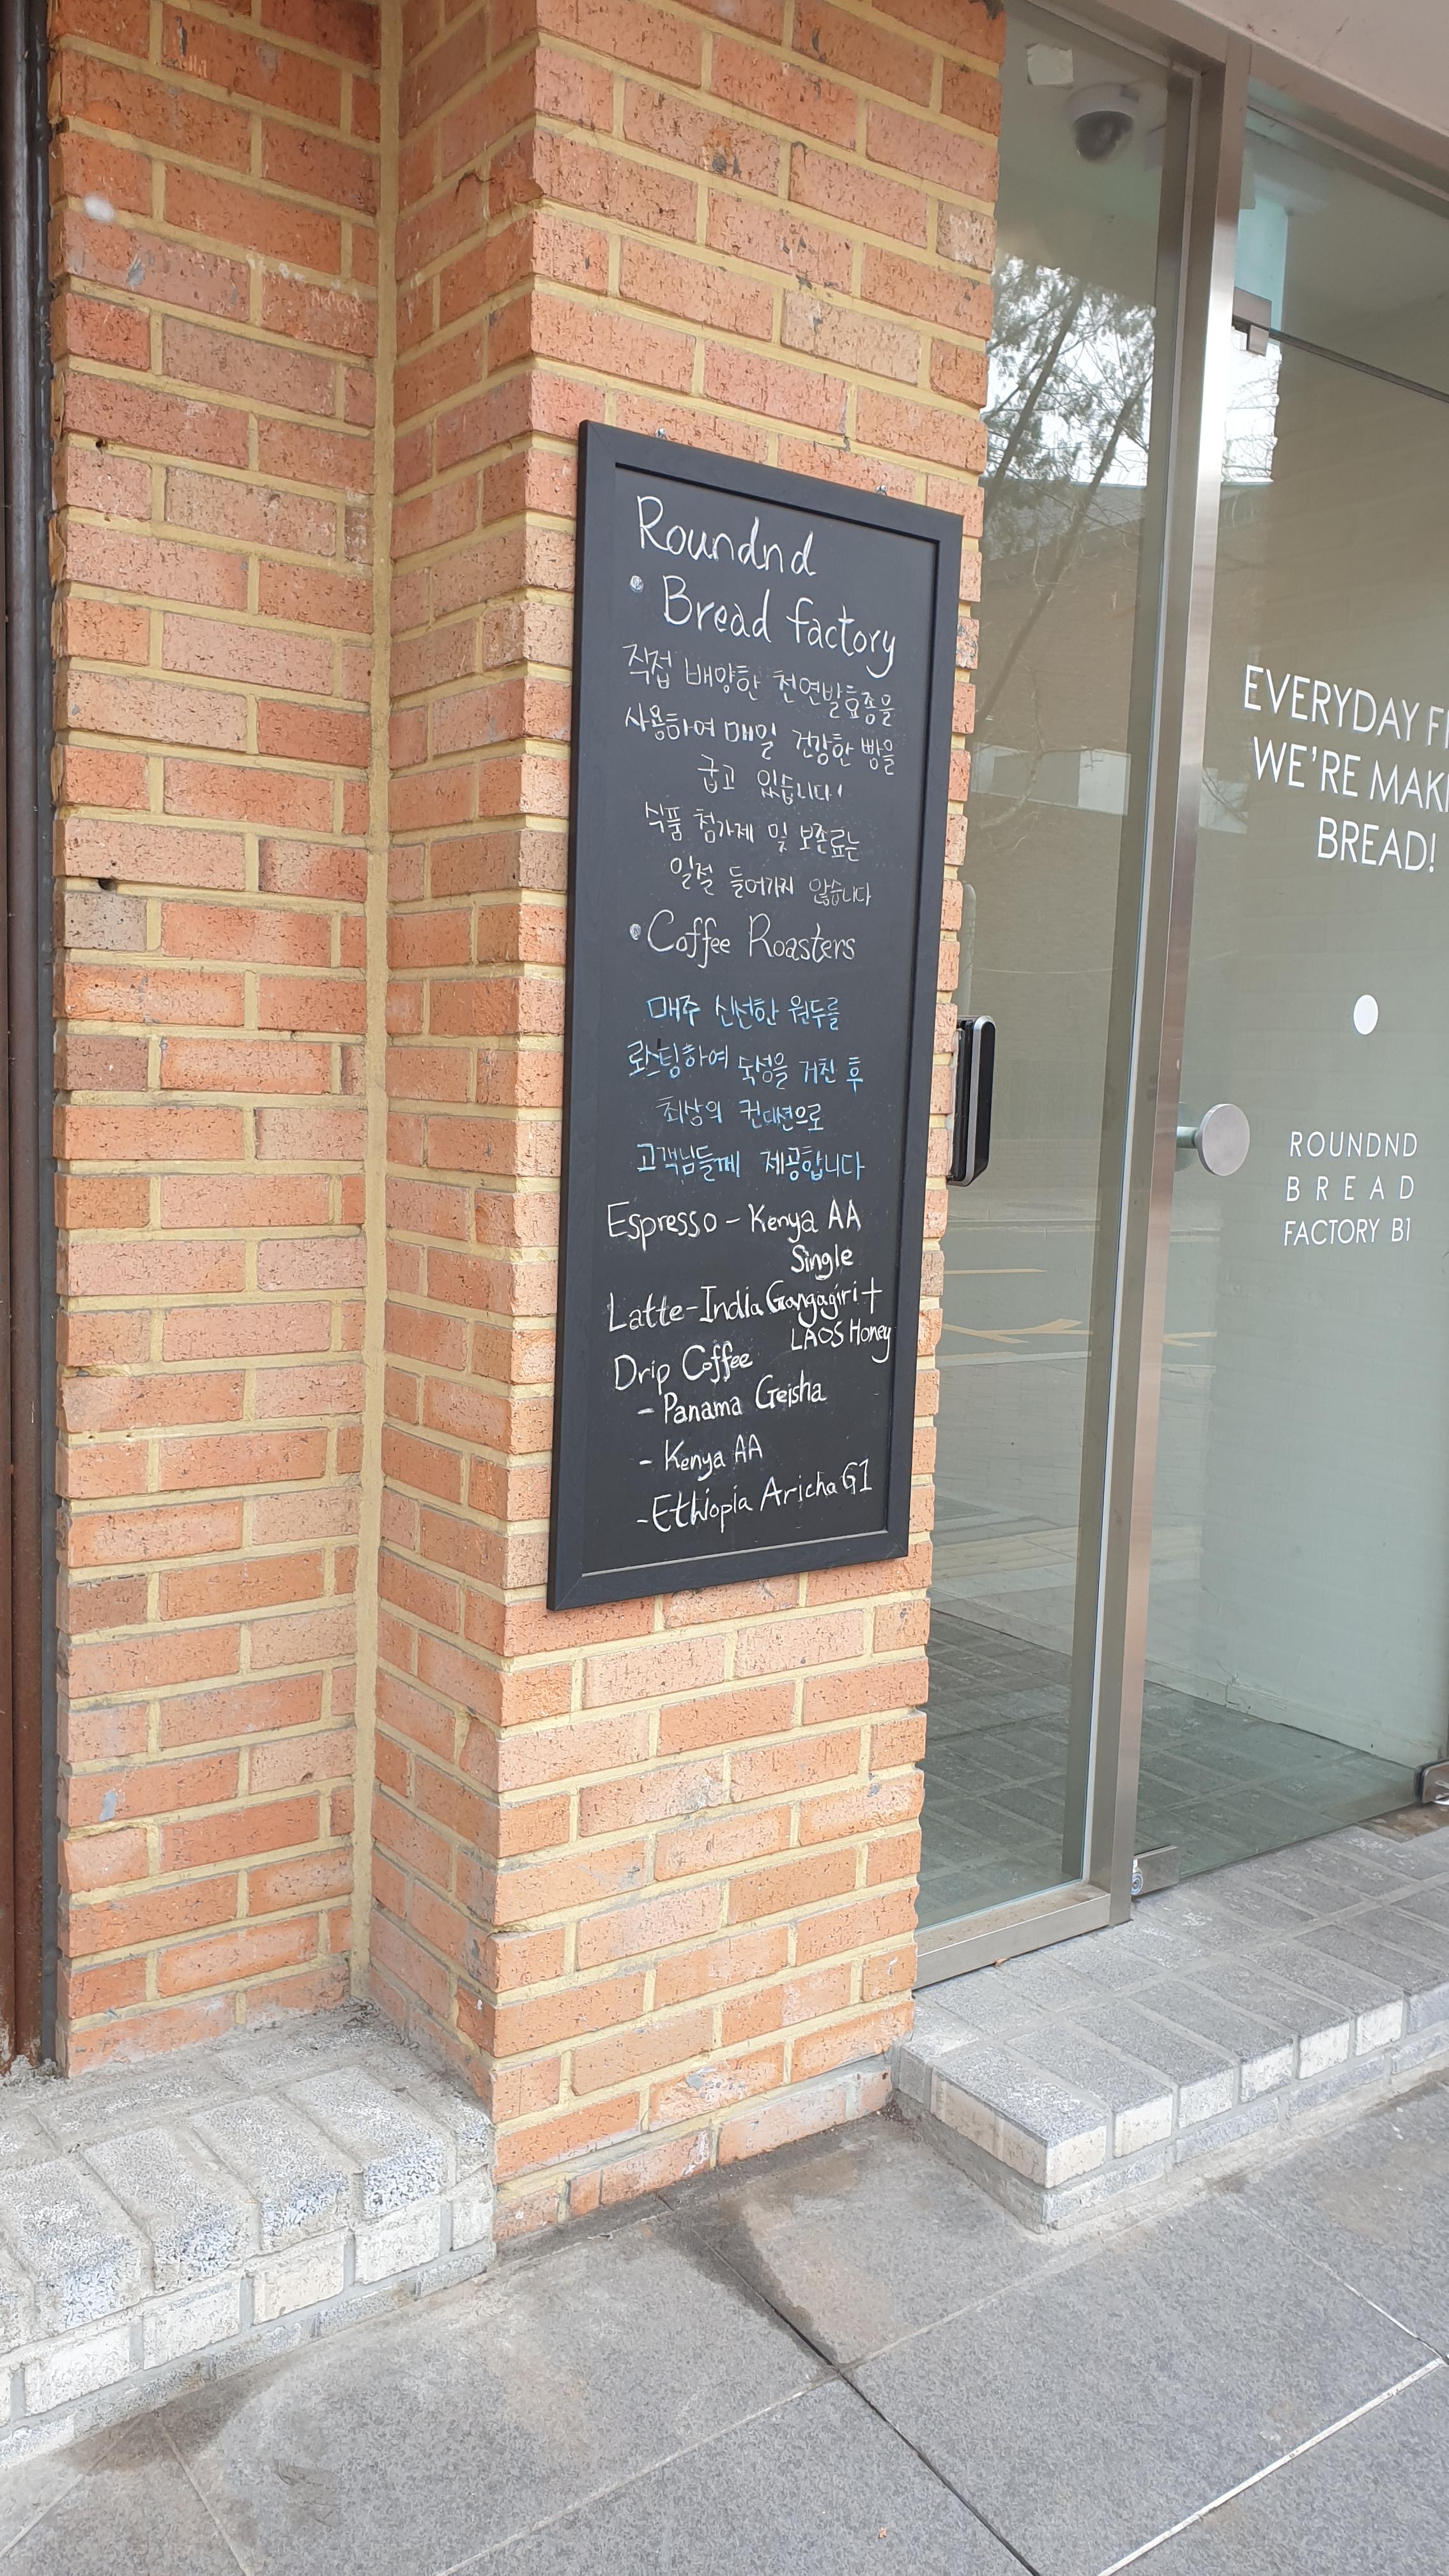 Roundnd
• Bread factory
직접 배양한 천연발효종을
사용하여 매일 건강한 빵을
굽고 있습니다!
식품 첨가제 및 보존료는
일절 들어가지 않습니다
• Coffee Roasters
매주 신선한 원두를
로스팅하여 숙성을 거친 후
최상의 컨디션으로
고객님들께 제공합니다
Espresso - Kenya AA
Single
Latte - India Gangagiri +
LAOS Honey
Drip Coffee
- Panama Geisha
- Kenya AA
- Ethiopia Aricha G1
EVERYDAY
WE'RE
BREAD!
ROUNDND
BREAD
FACTORY B1